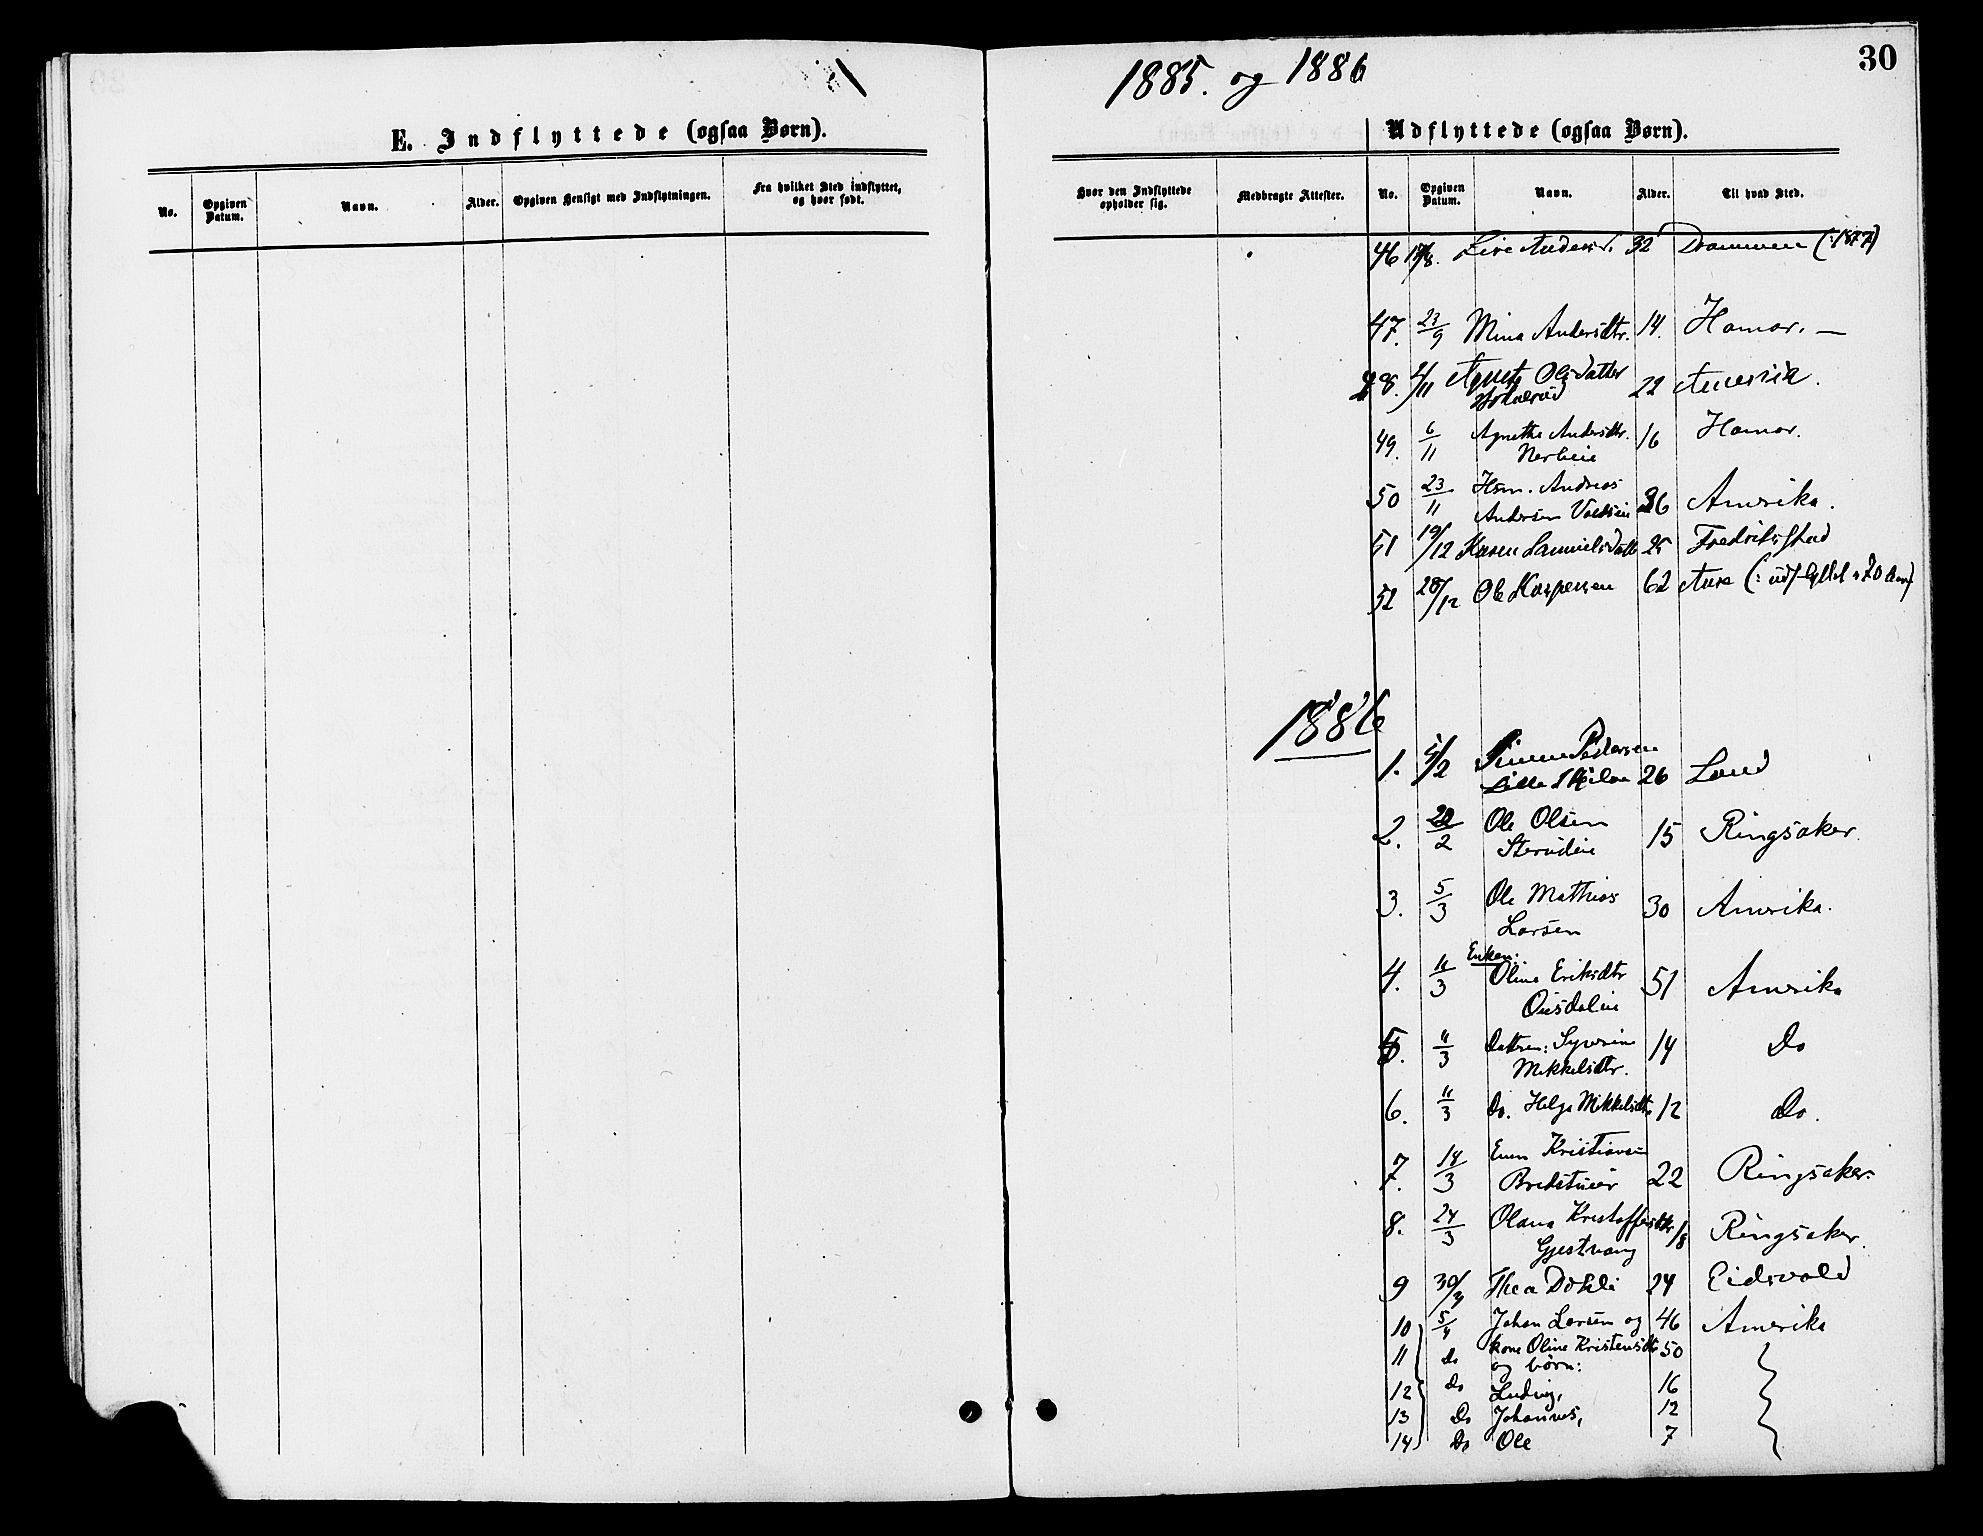 1885. og 1886
30
E. Indflyttede (ogsaa Børn).
No. Opgiven Datum. Navn. Alder. Opgiven Hensigt med Indflytningen. Fra hvilket Sted indflyttet, og hvor født.
Udflyttede (ogsaa Børn).
Hvor den Indflyttede opholder sig. Medbragte Attester. No. Opgiven Datum. Navn. Alder. Til hvad Sted.
46 /8. 32 Drammen (:1877)
47. 23/9 Mina Andersdtr. 14. Hamar. —
48. /11 Olsdatter 22 Amerika.
49. 6/11 Agnethe Andersdtr. 16 Hamar.
50 23/11 Hsm. Andreas Amerika.
Andersen
51 19/12 Karen Samuelsdatt 25 Fredrikstad
52 28/12 Ole Kaspersen 62 (: udflyttet
1886
1. 5/2 Pedersen
26 Land
2. 22/2 Ole Olsen 15 Ringsaker.
3. 5/3 Ole Mathias 30 Amerika.
Larsen
4. 11/3 Enken: Oline Eriksdtr 51 Amerika
5. 11/3 Dattren: Syverine 14 Do
Mikkelsdtr.
6. 11/3 Do. Helga Mikkelsdtr 12 Do.
7. 18/3 Even Kristiansen
22 Ringsaker.
8. 24/3 Olava Kristoffersdtr 18 Ringsaker.
Gjestvang
9 30/3 Thea Døhli 24 Eidsvold
10 5/4 Johan Larsen og 46 Amerika
11 do kone Oline Kristensdtr 50
og børn:
12 do Ludvig, 16
13 Do Johannes, 12
14 Do Ole 7